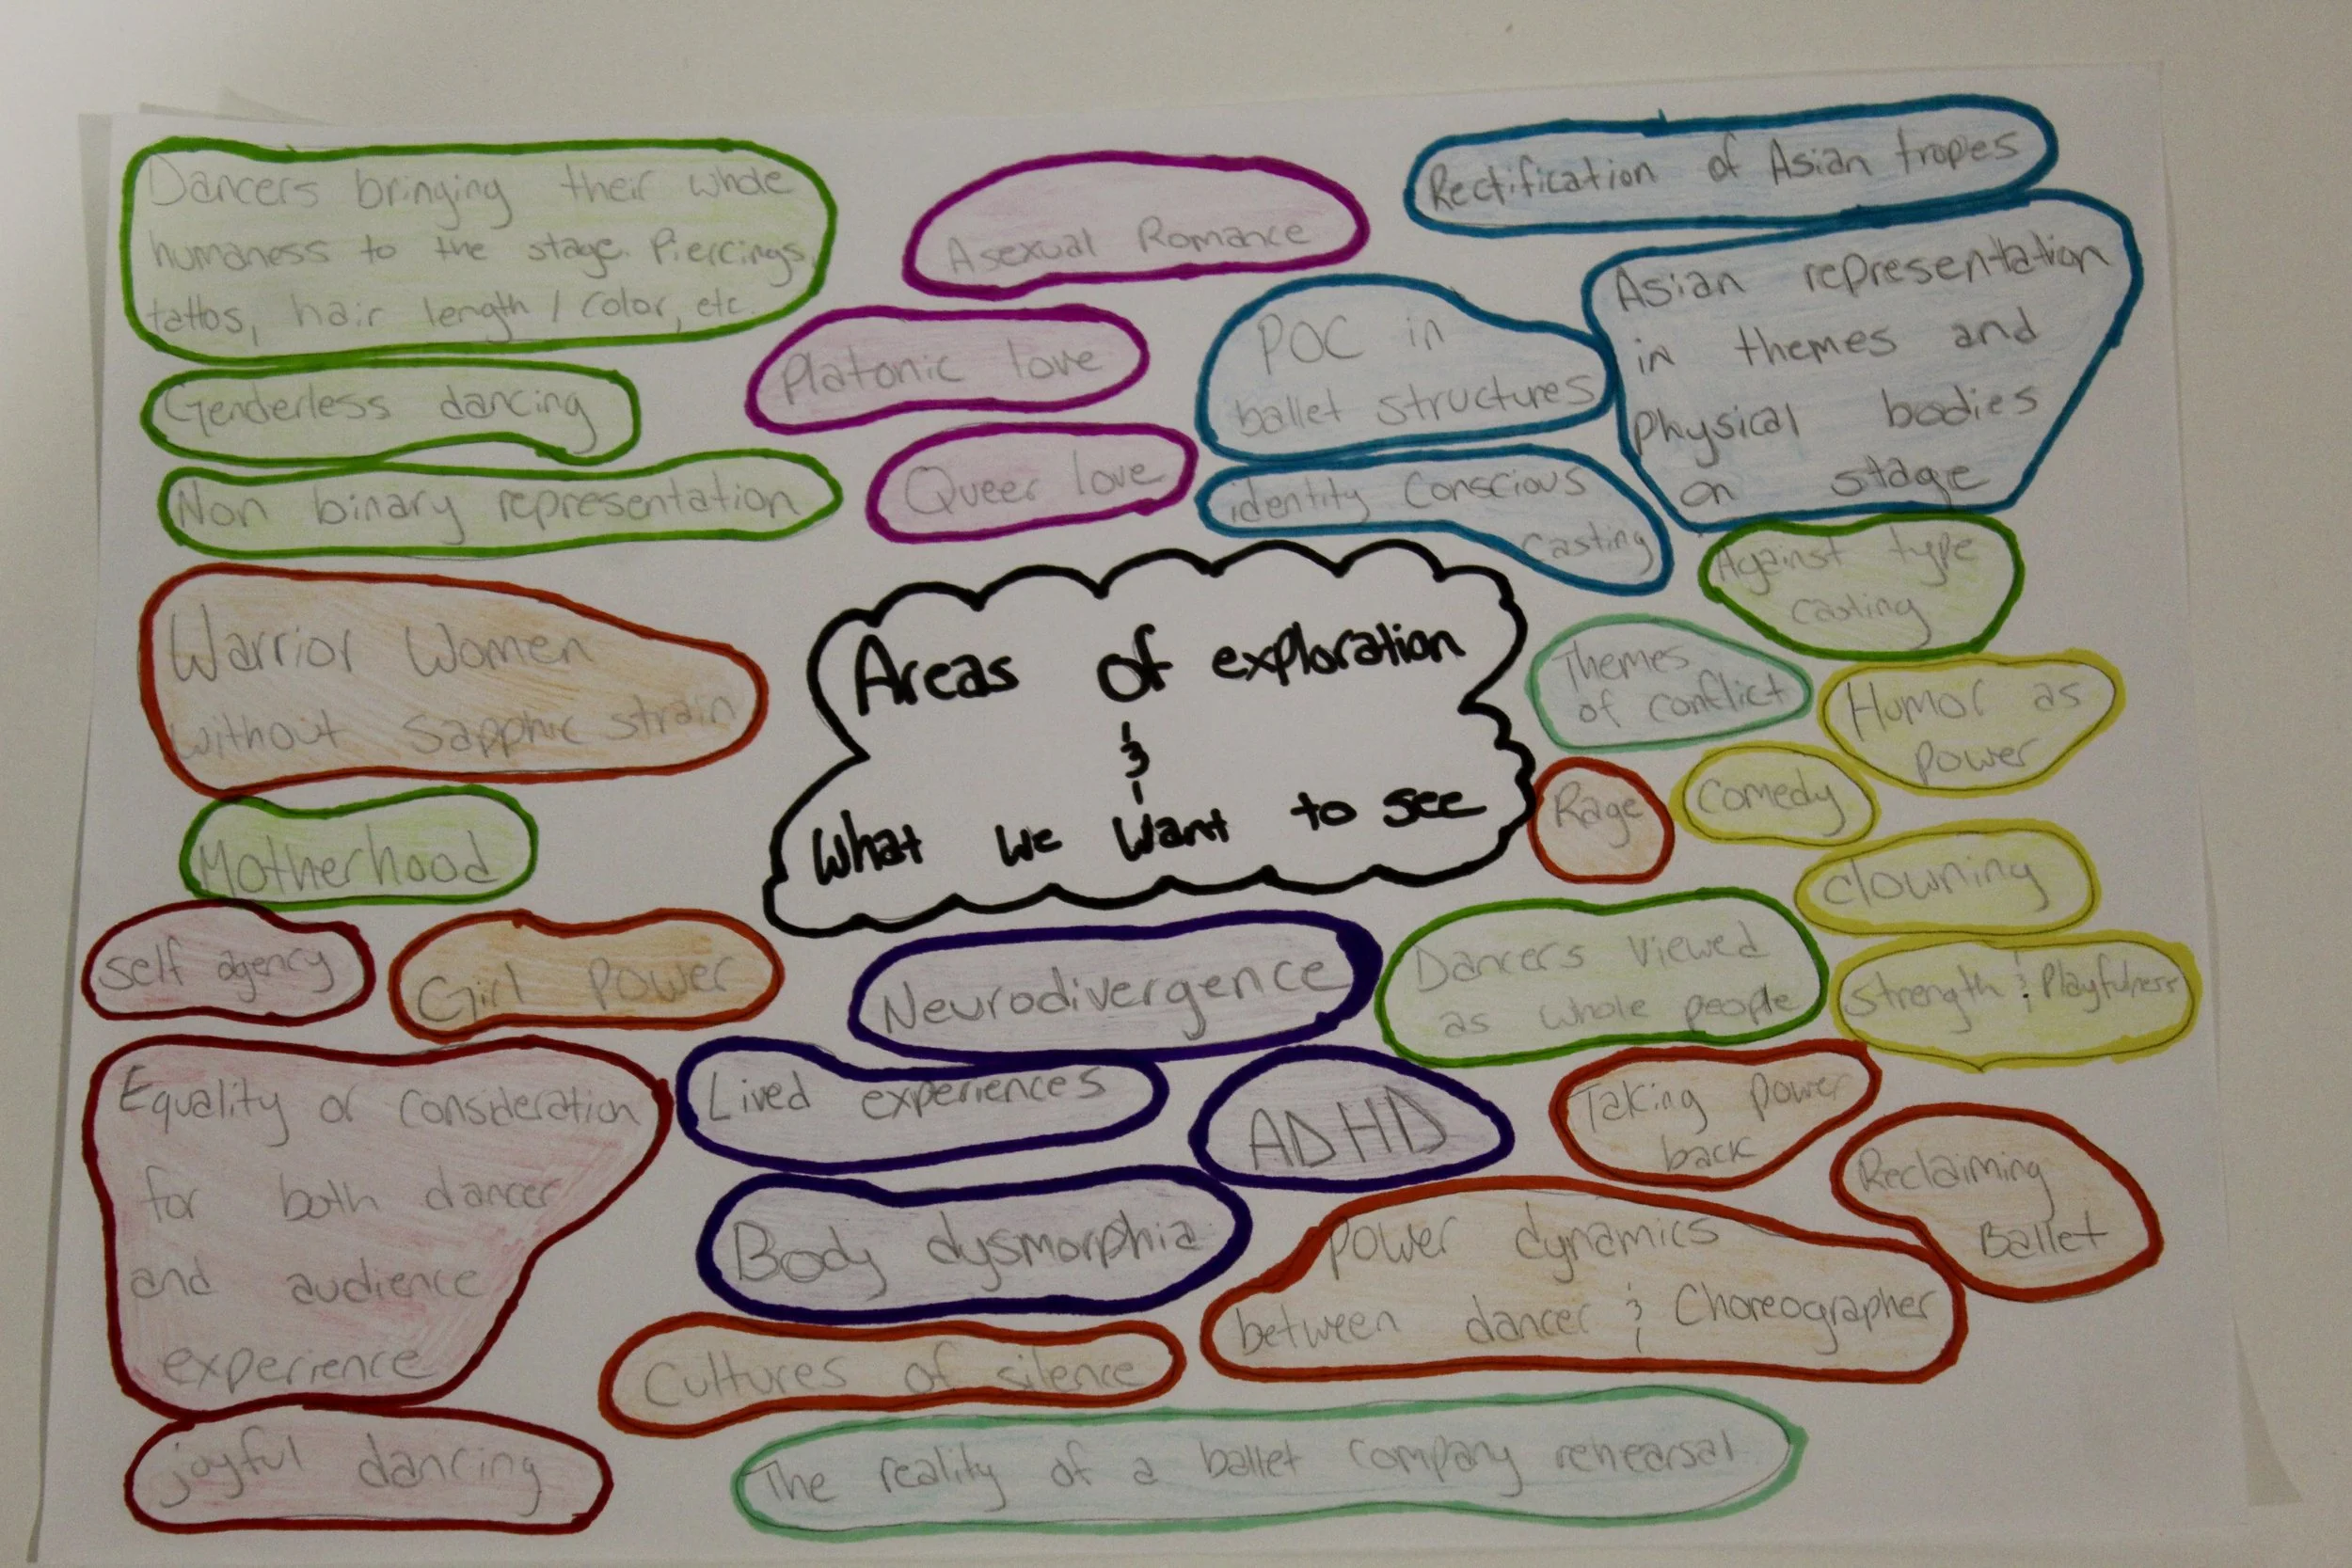 Dancers bringing their whole
humaness to the stage. Piercings,
tattos, hair length / color, etc.
Genderless dancing
Non binary representation
Asexual Romance
Platonic love
Queer love
Rectification of Asian tropes
POC in
ballet structures
Asian representation
in themes and
physical bodies
on stage
identity conscious
casting
Against type
casting
Warrior Women
without sapphic strain
Areas of exploration
&
What we want to see
Themes
of conflict
Humor as
power
Rage
Comedy
clowning
Motherhood
self agency
Girl Power
Neurodivergence
Dancers viewed
as whole people
Strength & Playfulness
Equality of consideration
for both dancer
and audience
experience
Lived experiences
ADHD
Taking power
back
Reclaiming
Ballet
Body dysmorphia
Power dynamics
between dancer & Choreographer
Cultures of silence
joyful dancing
The reality of a ballet company rehearsal